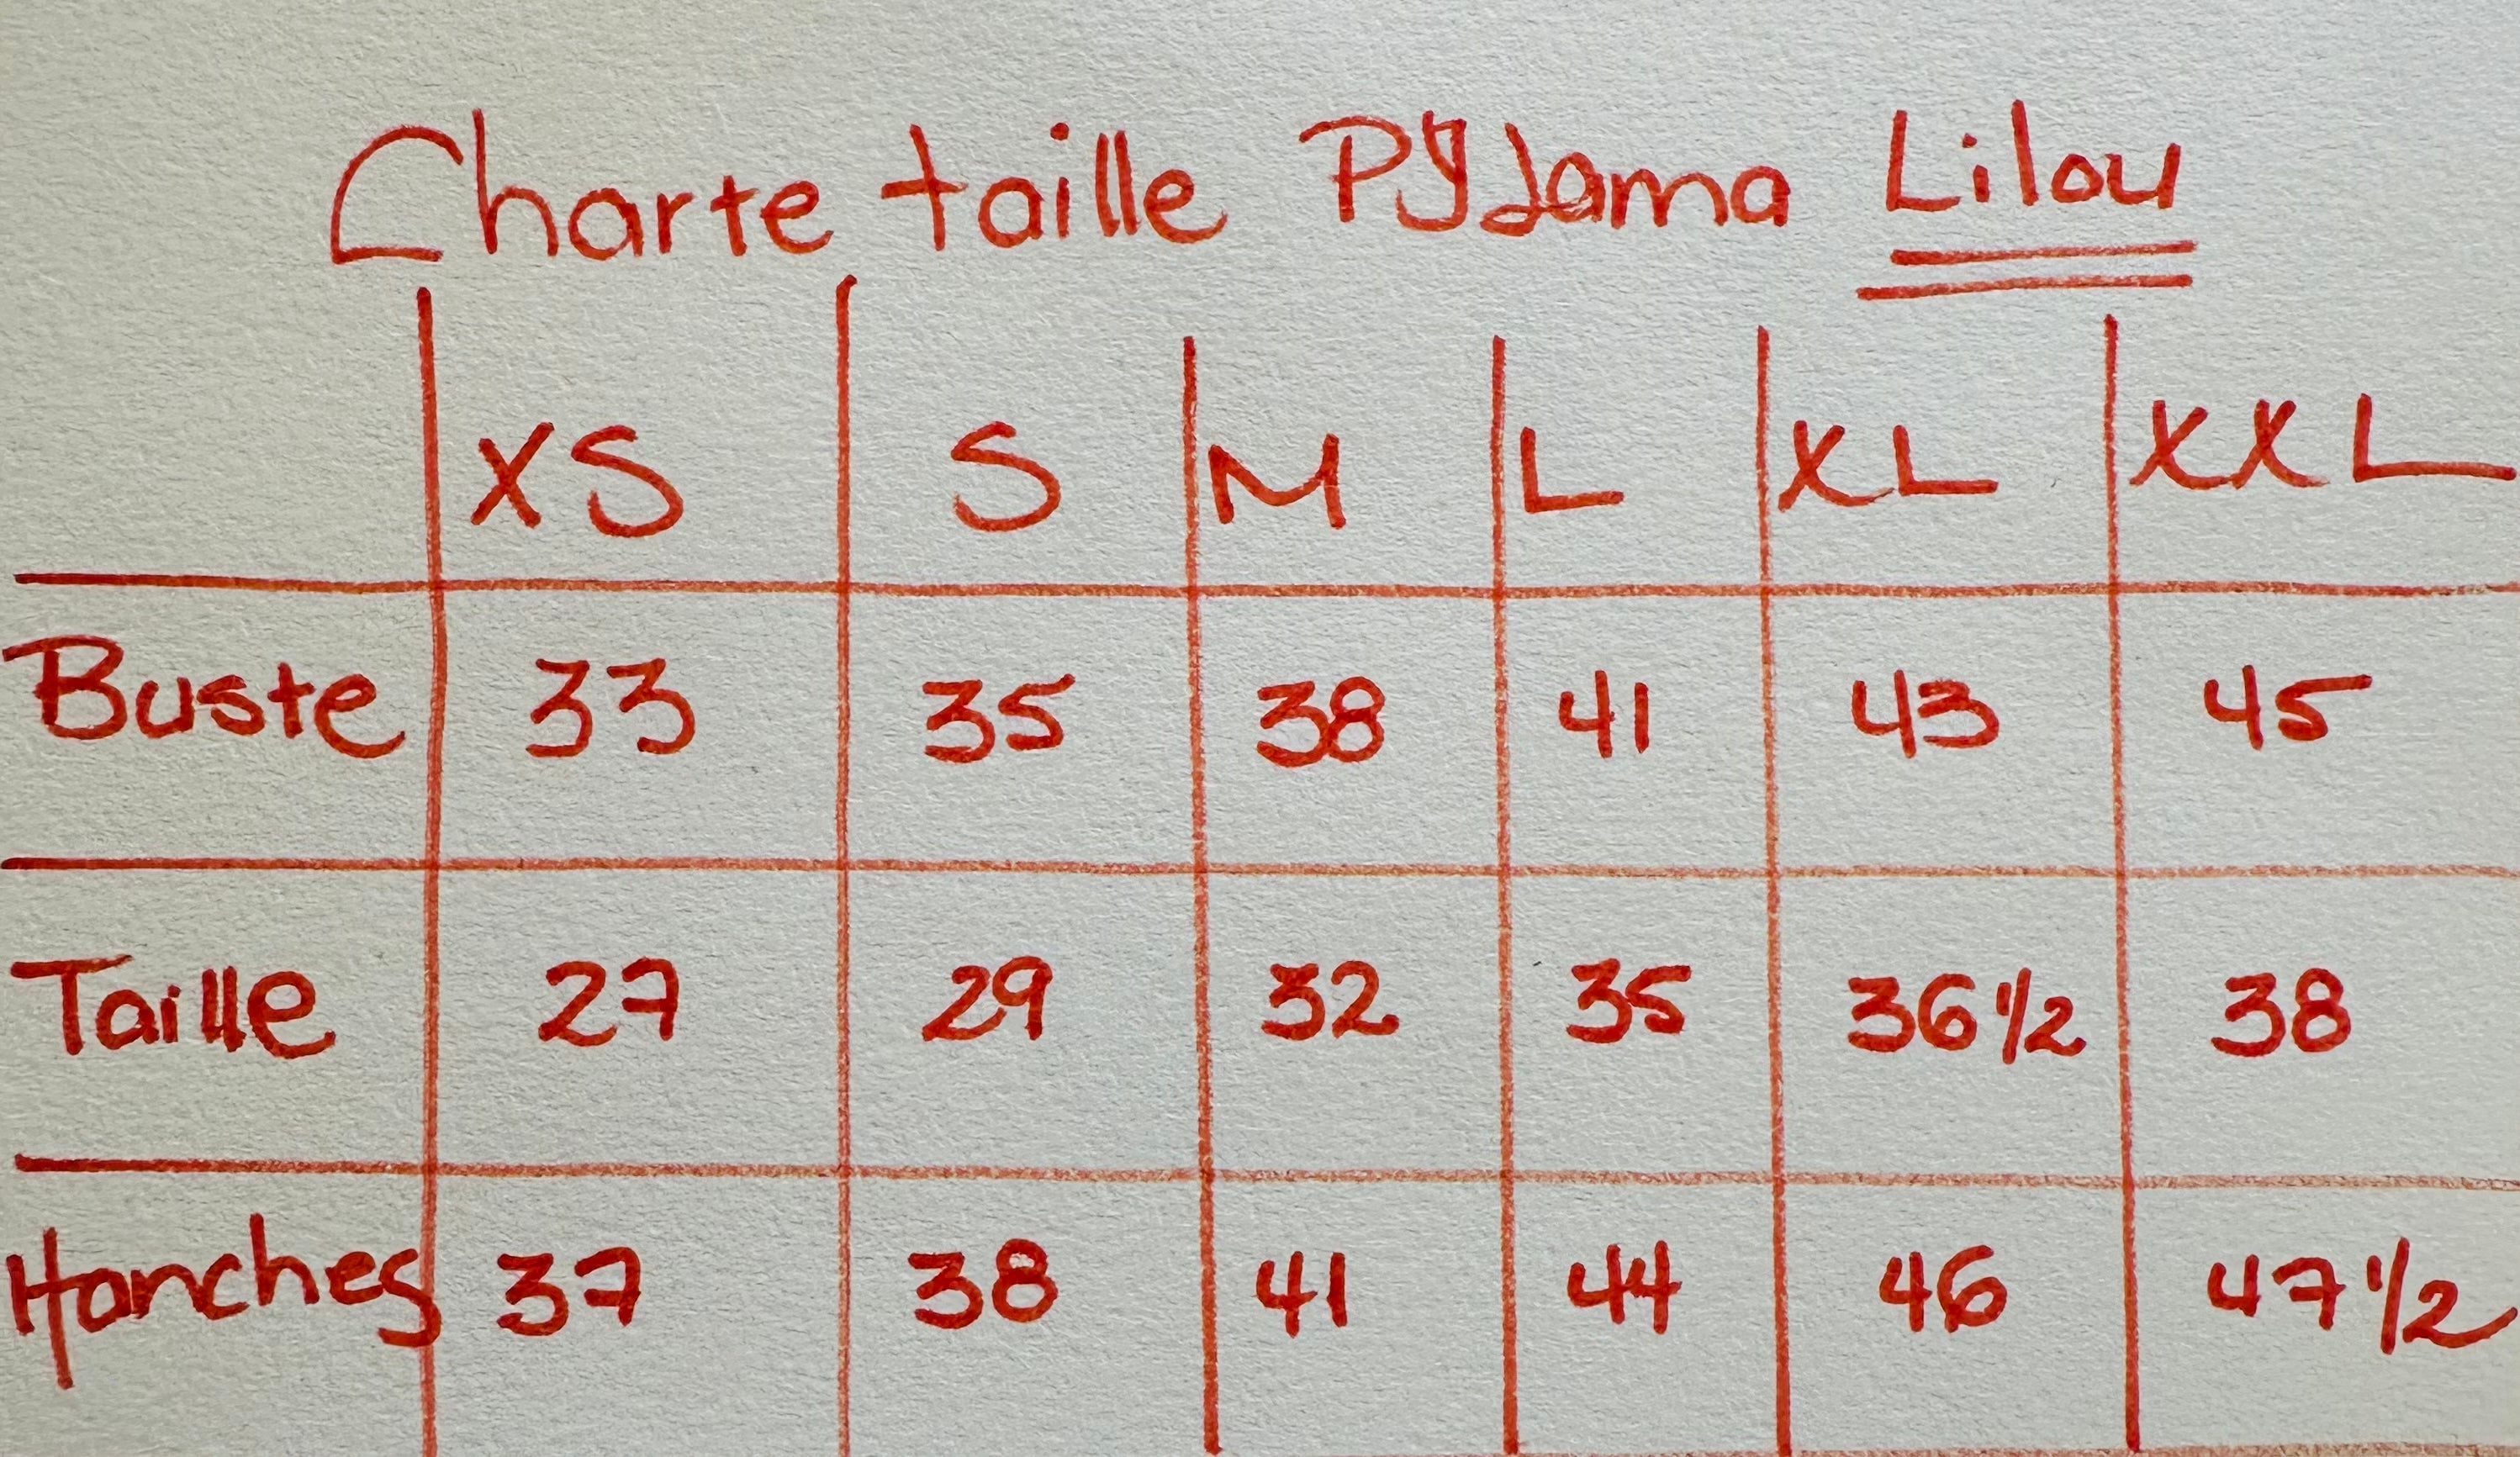 Charte taille Pyjama Lilou
XS S M L XL XXL
Buste 33 35 38 41 43 45
Taille 27 29 32 35 36 1/2 38
Hanches 37 38 41 44 46 47 1/2